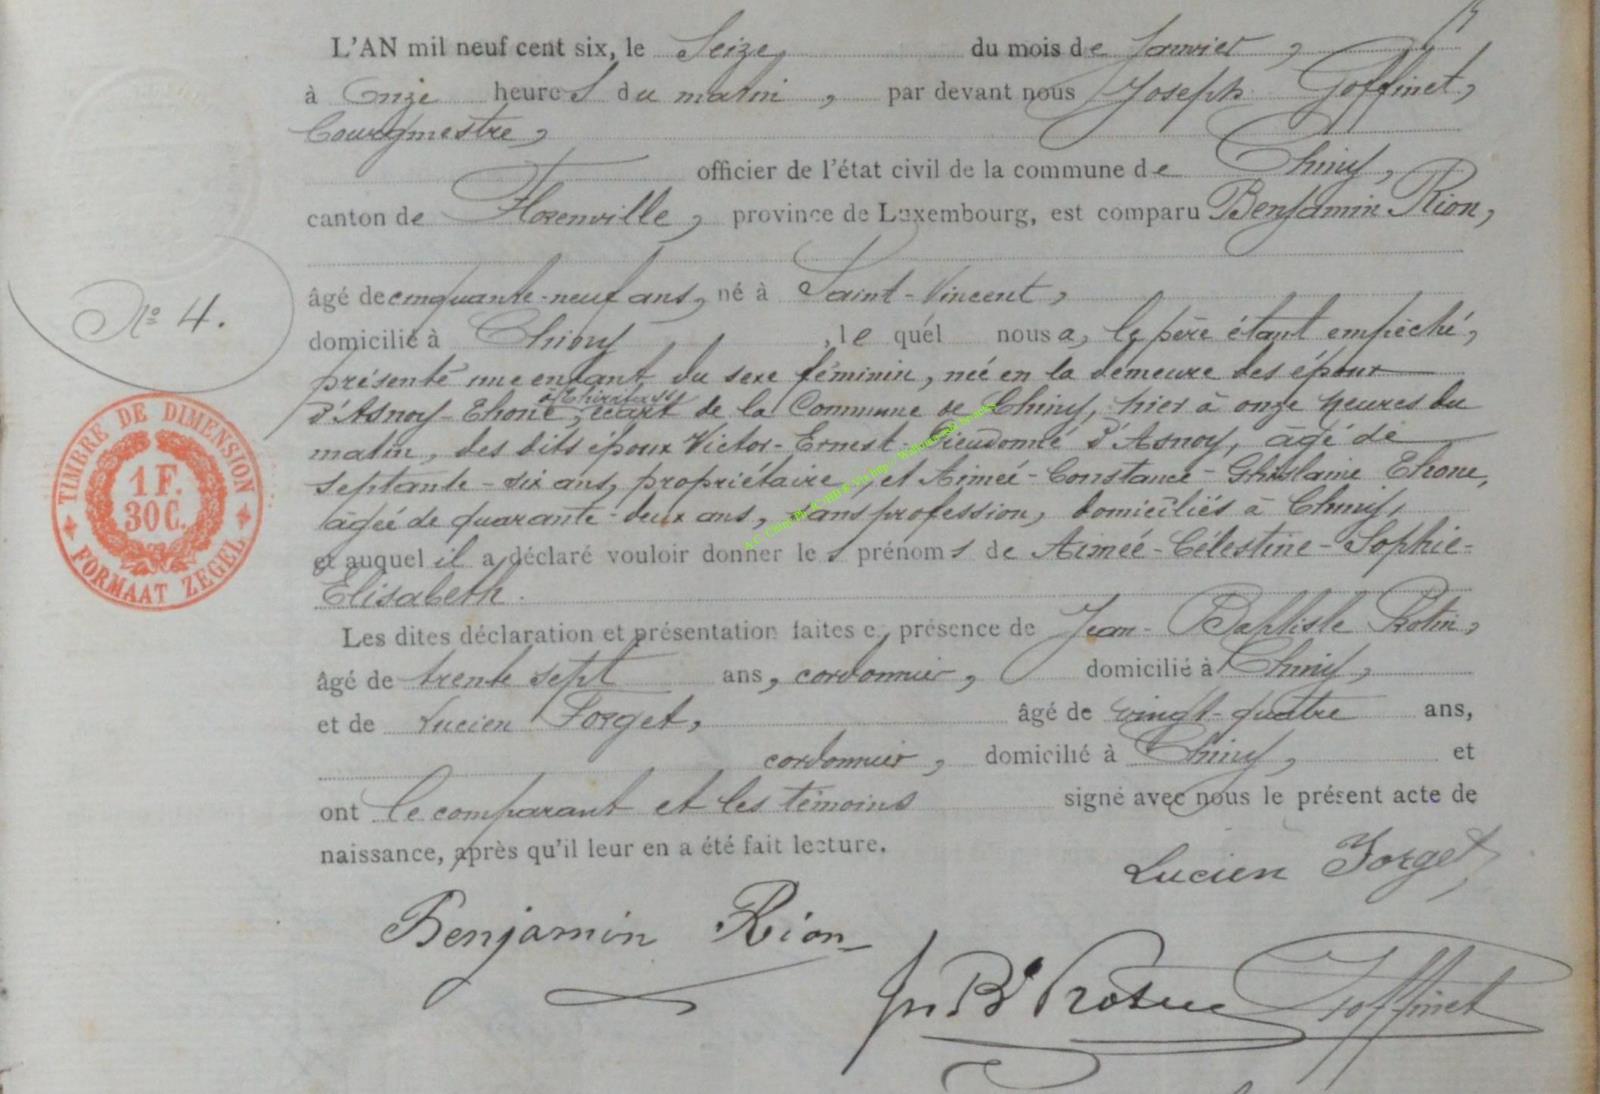 L'AN mil neuf cent six, le Seize du mois de Janvier,
à Onze heures du matin, par devant nous Joseph Goffinet,
Bourgmestre,
officier de l'état civil de la commune de Chiny,
canton de Florenville, province de Luxembourg, est comparu Benjamin Rion,
âgé de cinquante-neuf ans, né à Saint-Vincent,
domicilié à Chiny, le quel nous a, le père étant empêché,
présenté une enfant du sexe féminin, née en la demeure des époux
d'Asnoy-Ehone, écart de la Commune de Chiny, hier à onze heures du
matin, des dits époux Victor-Ernest-Dieudonné d'Asnoy, âgé de
septante-six ans, propriétaire, et Aimée-Constance-Ghislaine Ehone,
âgée de quarante-deux ans, sans profession, domiciliés à Chiny,
et auquel il a déclaré vouloir donner les prénoms de Aimée-Célestine-Sophie-
Elisabeth.
Les dites déclaration et présentation faites en présence de Jean-Baptiste Protin,
âgé de trente sept ans, cordonnier, domicilié à Chiny,
et de Lucien Forget, âgé de vingt-quatre ans,
cordonnier, domicilié à Chiny, et
ont le comparant et les témoins signé avec nous le présent acte de
naissance, après qu'il leur en a été fait lecture.
Nº 4.
TIMBRE DE DIMENSION
1 F.
30 C.
FORMAAT ZEGEL
Lucien Forget
Benjamin Rion
Jn Bt Protin
Goffinet